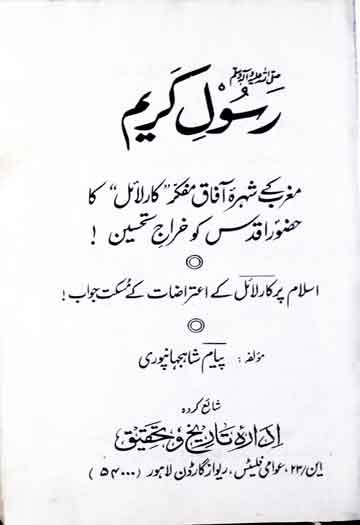 صلی اللہ علیہ وآلہ وسلم
رسُولِ کریم
مغرب کے شہرۂ آفاق مفکر "کارلائل" کا
حضورِ اقدس کو خراجِ تحسین !
اسلام پر کارلائل کے اعتراضات کے مُسکت جواب !
مؤلفہ : پیام شاہجہانپوری
شائع کردہ
ادارہ تاریخ و تحقیق
این / ۲۳، عوامی فلیٹس، ریواز گارڈن لاہور (۵۴۰۰۰)